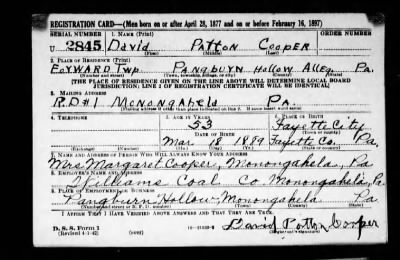 REGISTRATION CARD—(Men born on or after April 28, 1877 and on or before February 16, 1897)
SERIAL NUMBER 1. NAME (Print) ORDER NUMBER
U 2845 David Patton Cooper
(First) (Middle) (Last)
2. PLACE OF RESIDENCE (Print)
Forward Twp. Pangburn Hollow Alleg. Pa.
(Number and street) (Town, township, village, or city) (County) (State)
[THE PLACE OF RESIDENCE GIVEN ON THE LINE ABOVE WILL DETERMINE LOCAL BOARD
JURISDICTION; LINE 2 OF REGISTRATION CERTIFICATE WILL BE IDENTICAL]
3. MAILING ADDRESS
R.D#1 Monongahela Pa.
4. TELEPHONE 5. AGE IN YEARS 6. PLACE OF BIRTH
53 Fayette City
DATE OF BIRTH (Town or county)
Mar. 18 1889 Fayette Co. Pa,
(Exchange) (Number) (Mo.) (Day) (Yr.) (State or country)
7. NAME AND ADDRESS OF PERSON WHO WILL ALWAYS KNOW YOUR ADDRESS
Mrs. Margaret Cooper, Monongahela, Pa
8. EMPLOYER'S NAME AND ADDRESS
Williams Coal Co. Monongahela, Pa.
9. PLACE OF EMPLOYMENT OR BUSINESS
Pangburn Hollow, Monongahela Pa
(Number and street or R. F. D. number) (Town) (County) (State)
I AFFIRM THAT I HAVE VERIFIED ABOVE ANSWERS AND THAT THEY ARE TRUE.
D. S. S. Form 1
(Revised 4-1-42) (over) David Patton Cooper
(Registrant's signature)